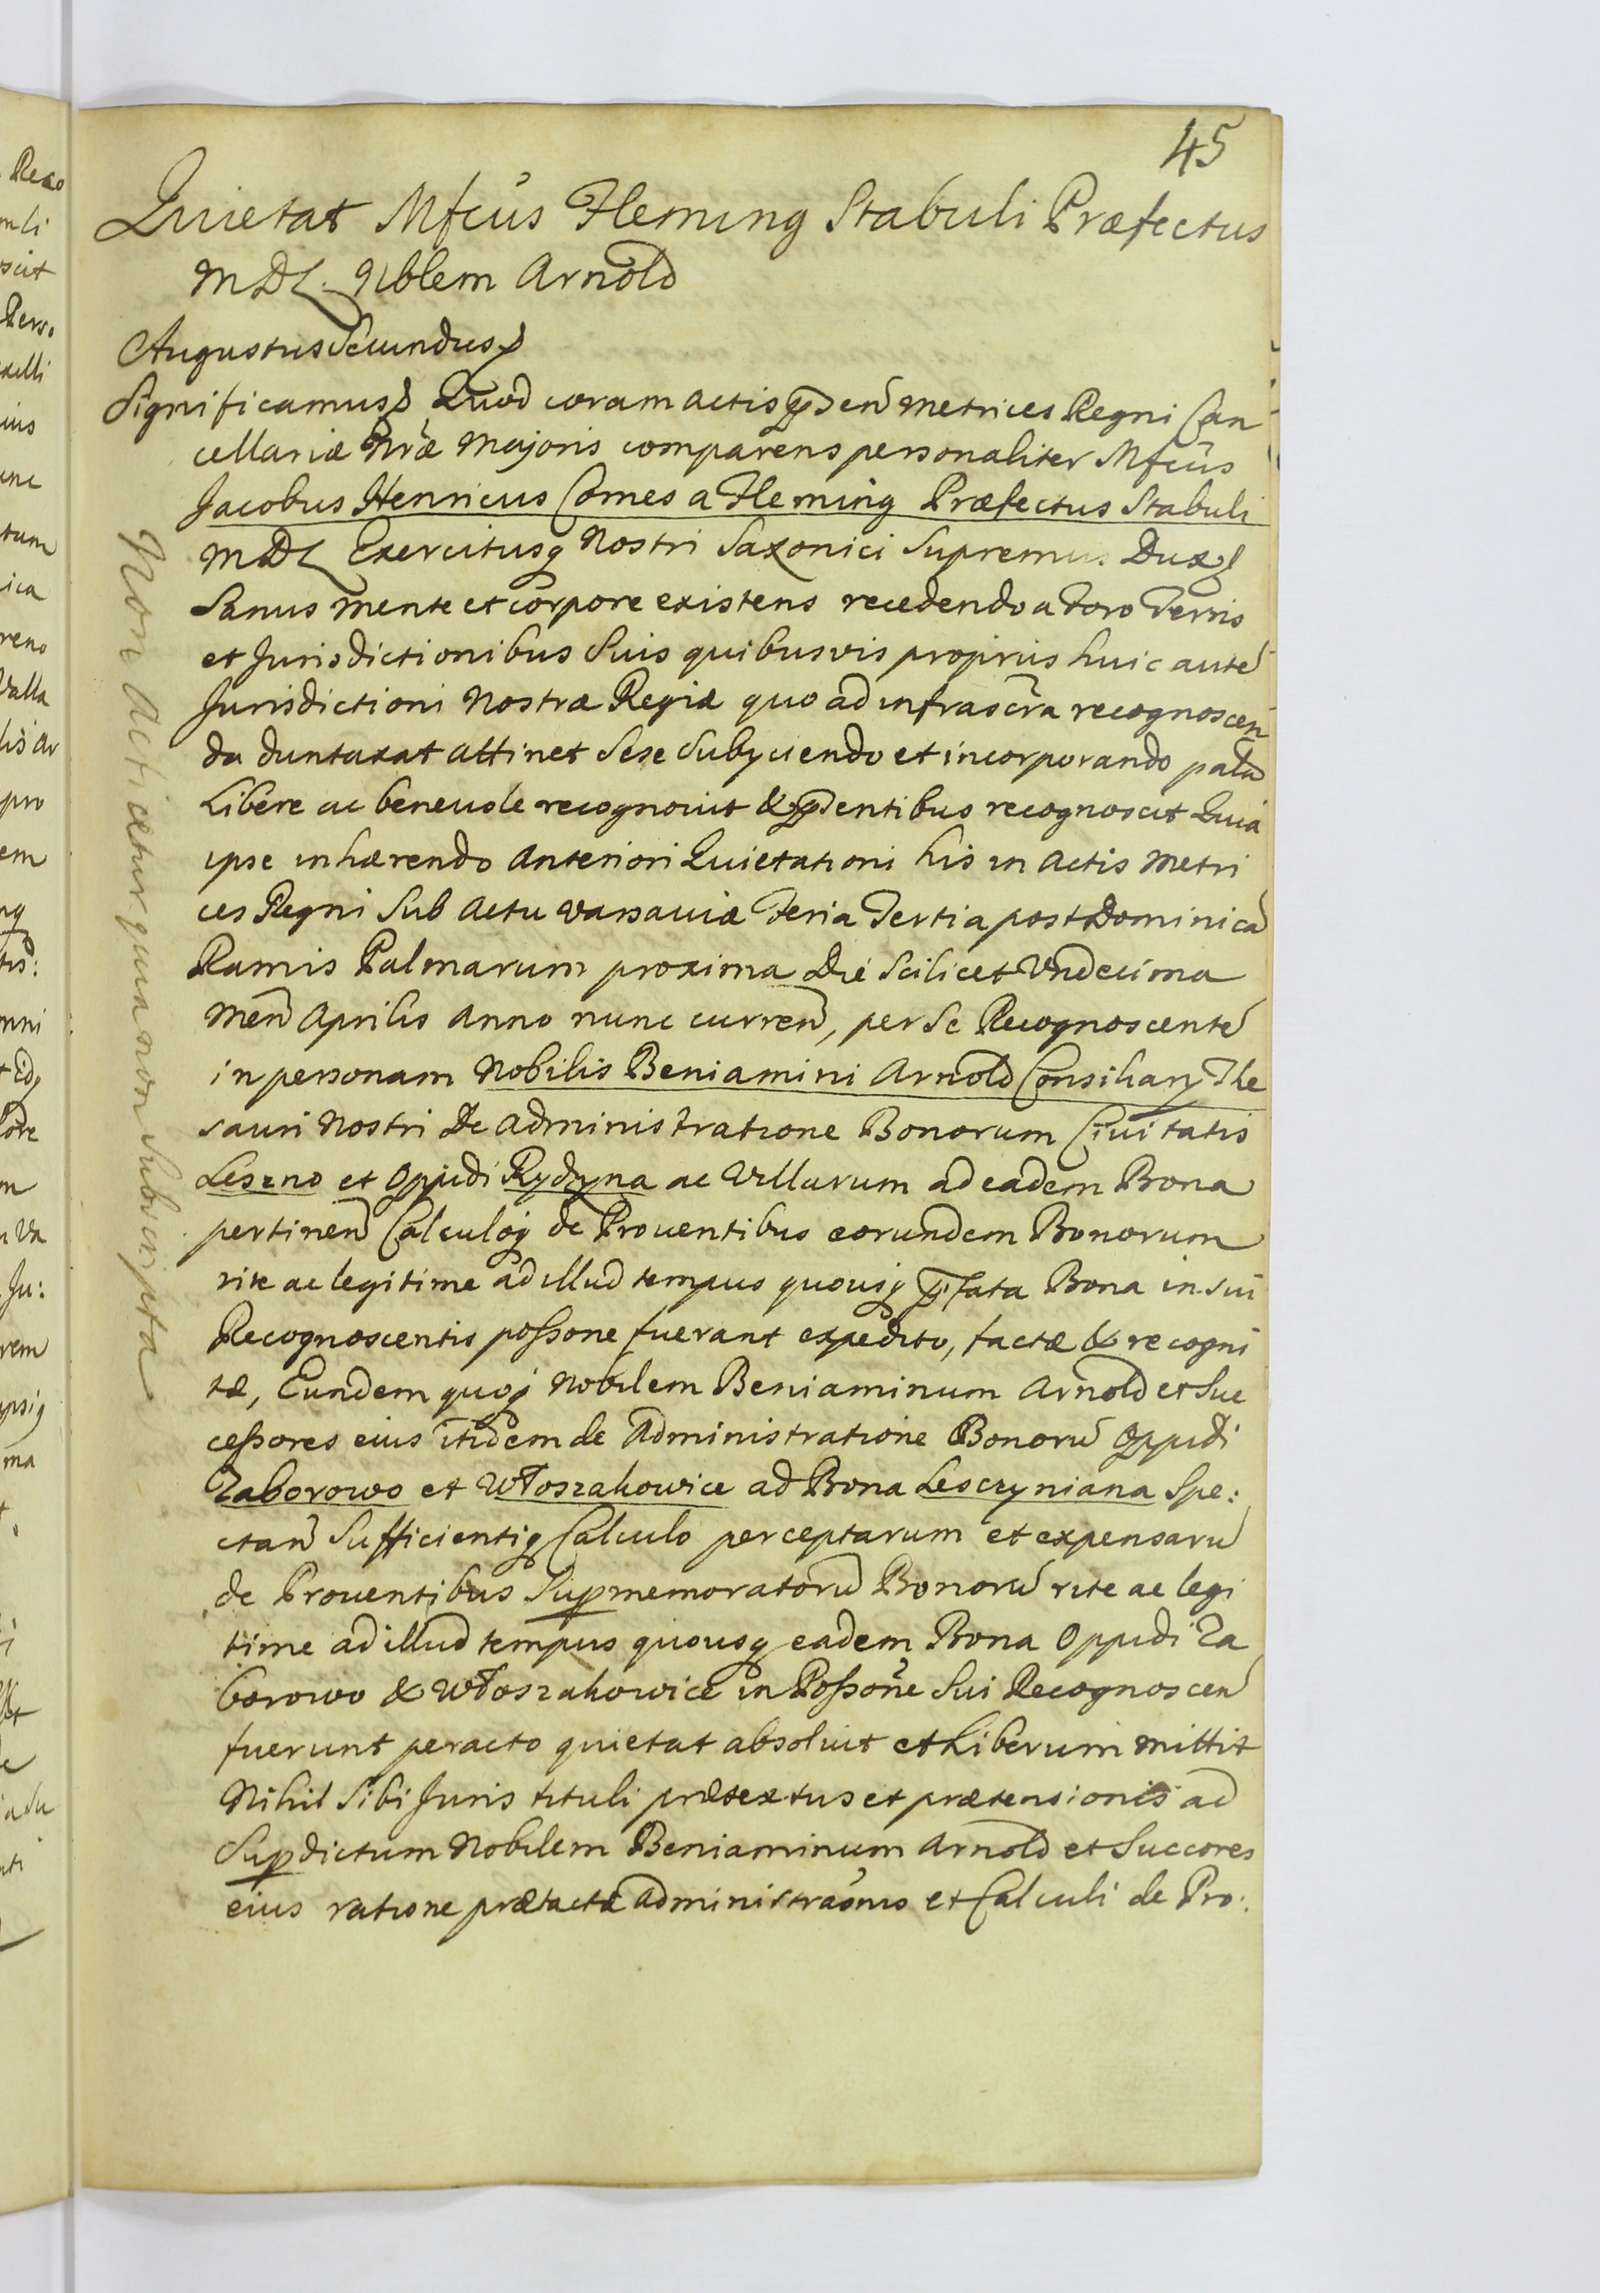 45
Quietat Mfcus Fleming Stabuli Præfectus
MDL. Nblem Arnold
Augustus Secundus
Significamus Quod coram actis pñsen Metrices Regni Can
cellariæ Nræ Majoris comparens personaliter Mfcus
Jacobus Henricus Comes a Fleming Præfectus Stabuli
MDL Exercitusq Nostri Saxonici Supremus Dux
Sanus mente et corpore existens recedendo a Foro Terris
et Jurisdictionibus Suis quibusvis propriis huic autē
Jurisdictioni Nostræ Regiæ quo ad infrascra recognoscen
da duntaxat attinet Sese Subyciendo et incorporando palā
Libere ac beneuole recognouit & pñsentibus recognoscit Quia
ipse inhærendo Anteriori Quietationi his in Actis Metri
ces Regni Sub Actu Varsauiæ Feria Tertia post Dominicā
Ramis Palmarum proxima Die Scilicet Undecima
Men̄ Aprilis Anno nunc curren̄, per Se Recognoscentē
in personam Nobilis Beniamini Arnold Consiliary The
sauri Nostri De Administratione Bonorum Civitatis
Leszno et Oppidi Rydzyna ac Villarum ad eadem Bona
pertinen̄ Calculoq de Prouentibus eorundem Bonorum
rite ac legitime ad illud tempus quousq præfata Bona in sui
Recognoscentis poßone fuerant expedito, factæ & recogni
tæ, Eundem quoq Nobilem Beniaminum Arnold et Suc
ceßores eius itidem de Administratione Bonorū Oppidi
Zaborowo et Włoszakowice ad Bona Lesczyniana Spe:
ctan̄ Sufficientiq Calculo perceptarum et expensarū
de Prouentibus Supmemoratorū Bonorū rite ac legi
time ad illud tempus quousq eadem Bona Oppidi Za
borowo & Włoszakowice in Poßone Sui Recognoscen̄
fuerunt peracto quietat absoluit et Liberum mittit
Nihil Sibi Juris tituli prætextus et prætensionis ad
Supdictum Nobilem Beniaminum Arnold et Succores
eius ratione prætactæ Administraonis et Calculi de Pro:
Non Acticetur quia non Subscripta